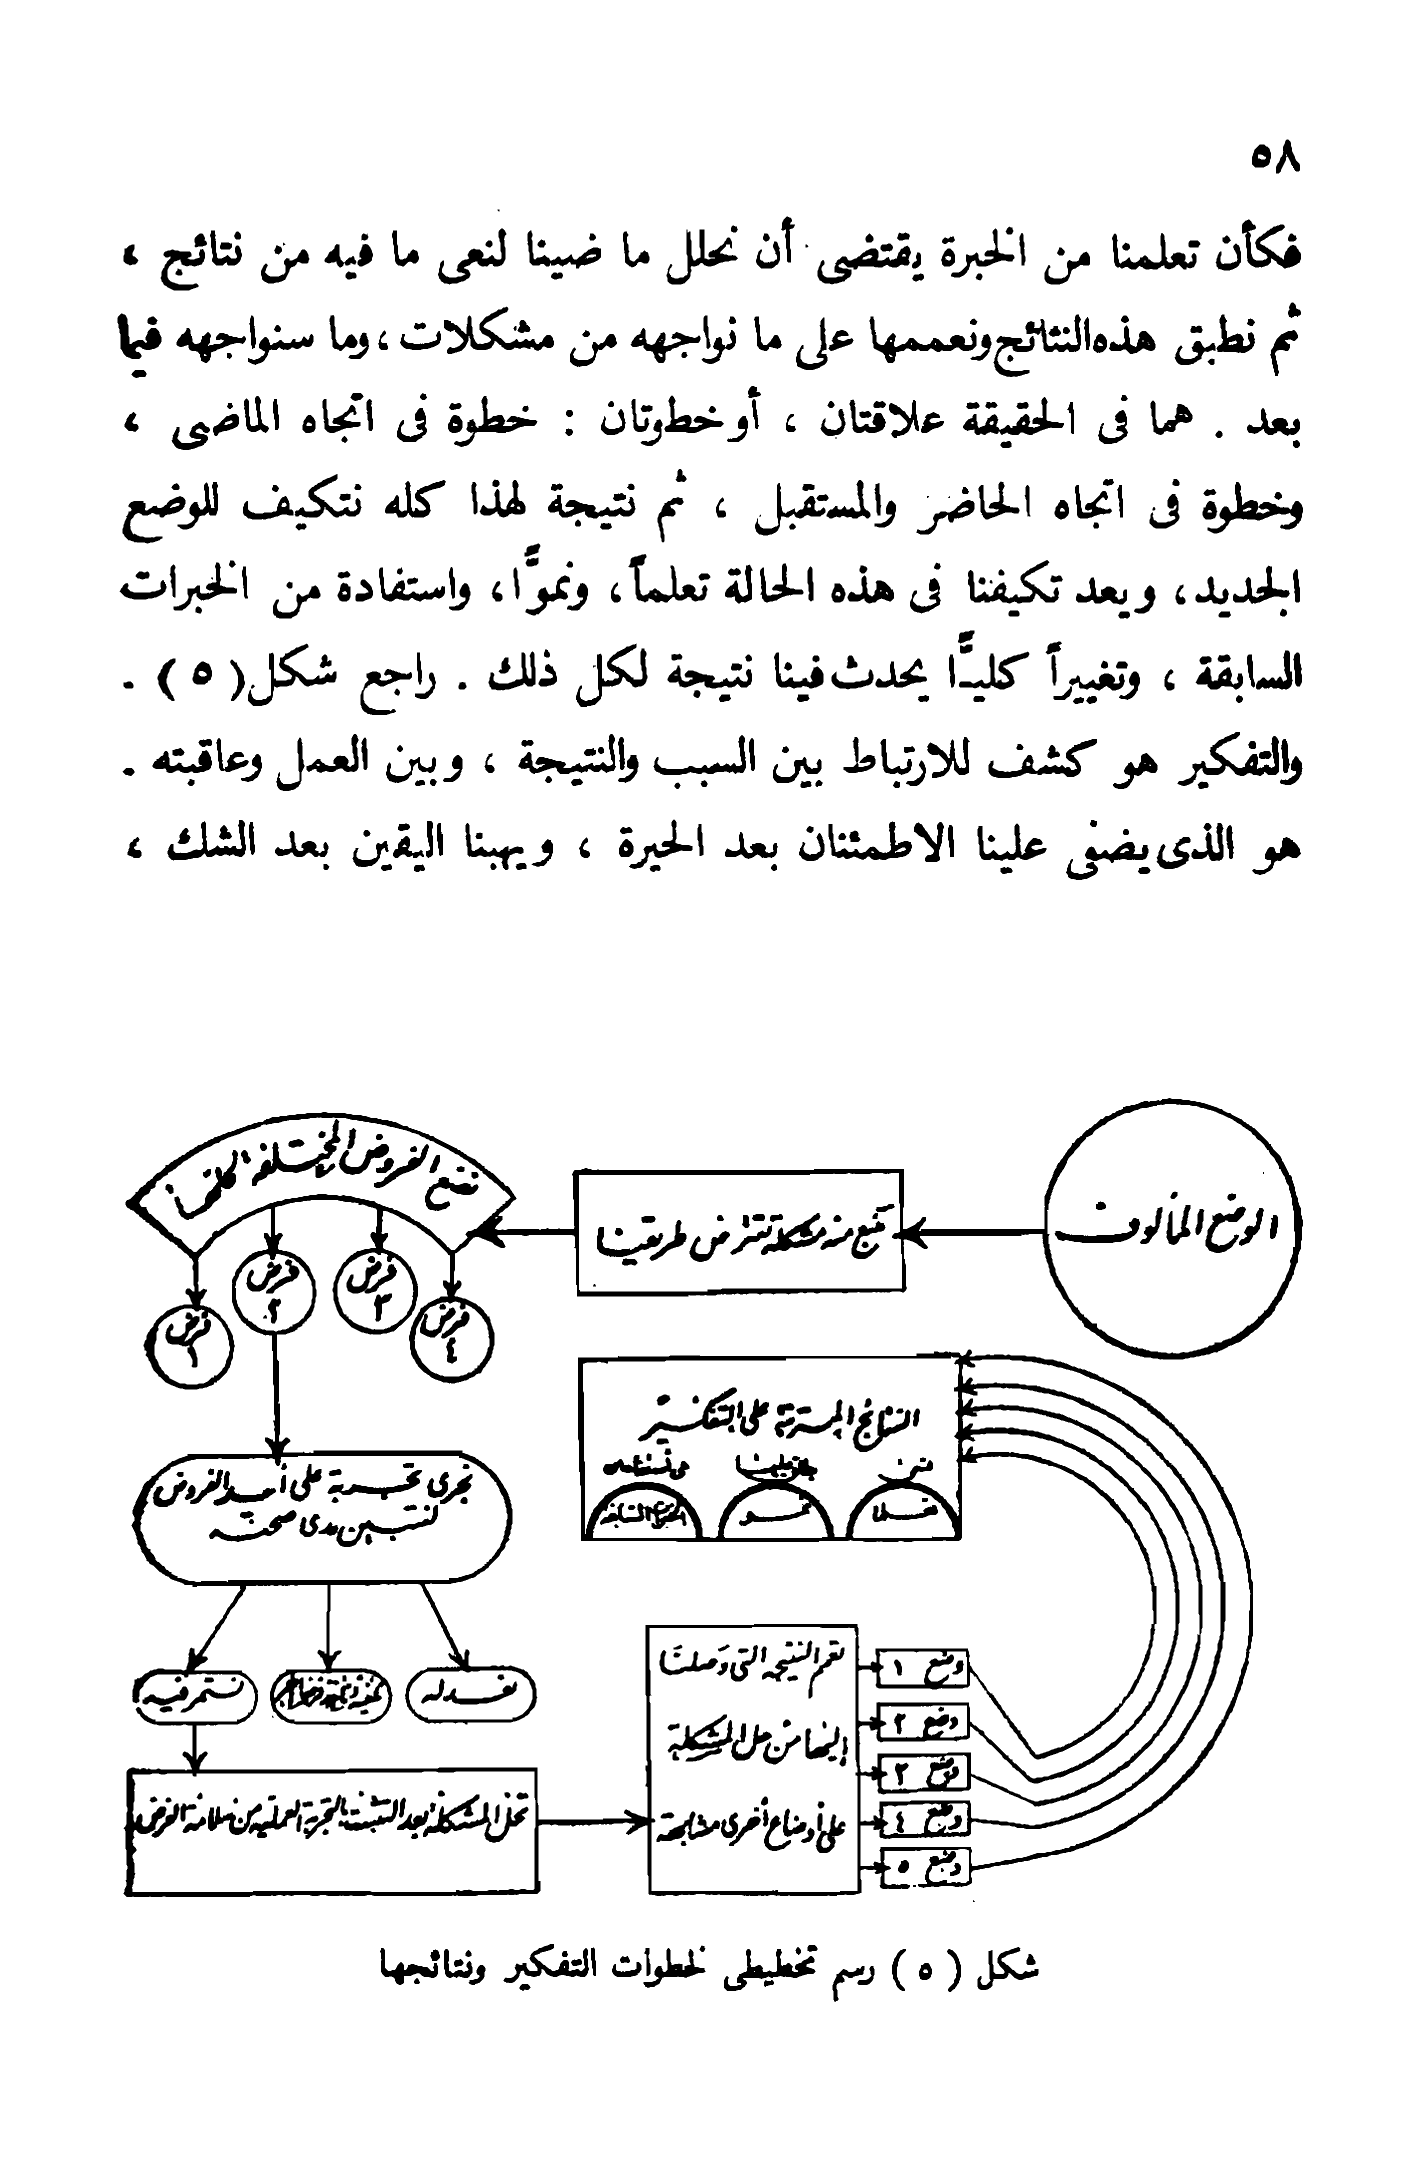 ٥٨
فكأن تعلمنا من الخبرة يقتضى أن نحلل ما ضينا لنعى ما فيه من نتائج ،
ثم نطبق هذه النتائج ونعممها على ما نواجهه من مشكلات ، وما سنواجهه فيما
بعد . هما فى الحقيقة علاقتان ، أو خطوتان : خطوة فى اتجاه الماضى ،
وخطوة فى اتجاه الحاضر والمستقبل ، ثم نتيجة لهذا كله نتكيف للوضع
الجديد ، ويعد تكيفنا فى هذه الحالة تعلماً ، ونموًّا ، واستفادة من الخبرات
السابقة ، وتغييراً كليـًّا يحدث فينا نتيجة لكل ذلك . راجع شكل ( ٥ ) .
والتفكير هو كشف للارتباط بين السبب والنتيجة ، وبين العمل وعاقبته .
هو الذى يضفى علينا الاطمئنان بعد الحيرة ، ويهبنا اليقين بعد الشك ،
الوضع المألوف
تنبع منه مشكلة تعترض طريقنا
نضع الفروض المختلفة لحلها
فرض ١
فرض ٢
فرض ٣
فرض ٤
نجرى تجربة على أحد الفروض
لنتبين مدى صحته
نعدله
نستمر فيه
تحل المشكلة بعد التثبت بالتجربة العملية من سلامة الفرض
نعمم النتيجة التى وصلنا
إليها من حل المشكلة
على أوضاع أخرى مشابهة
وضع ١
وضع ٢
وضع ٣
وضع ٤
وضع ٥
النتائج المترتبة على التفكير
تعلما
نمو
الخبرات السابقة
شكل ( ٥ ) رسم تخطيطى لخطوات التفكير ونتائجها